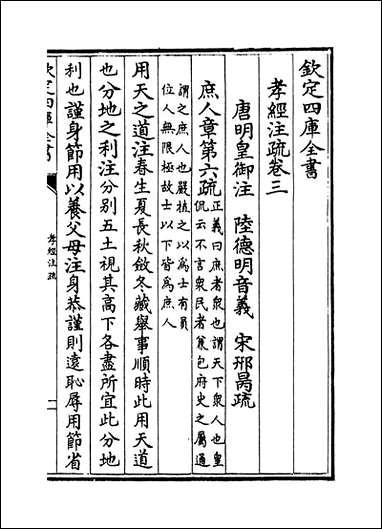 欽定四庫全書
孝經注疏卷三
唐明皇御注 陸德明音義 宋邢昺疏
庶人章第六疏正義曰庶者衆也謂天下衆人也皇
侃云不言衆民者兼包府史之屬通
謂之庶人也嚴植之以為士有員
位人無限極故士以下皆為庶人
用天之道注春生夏長秋斂冬藏舉事順時此用天道
也分地之利注分别五土視其高下各盡所宜此分地
利也謹身節用以養父母注身恭謹則遠恥辱用節省
欽定四庫全書
孝經注疏